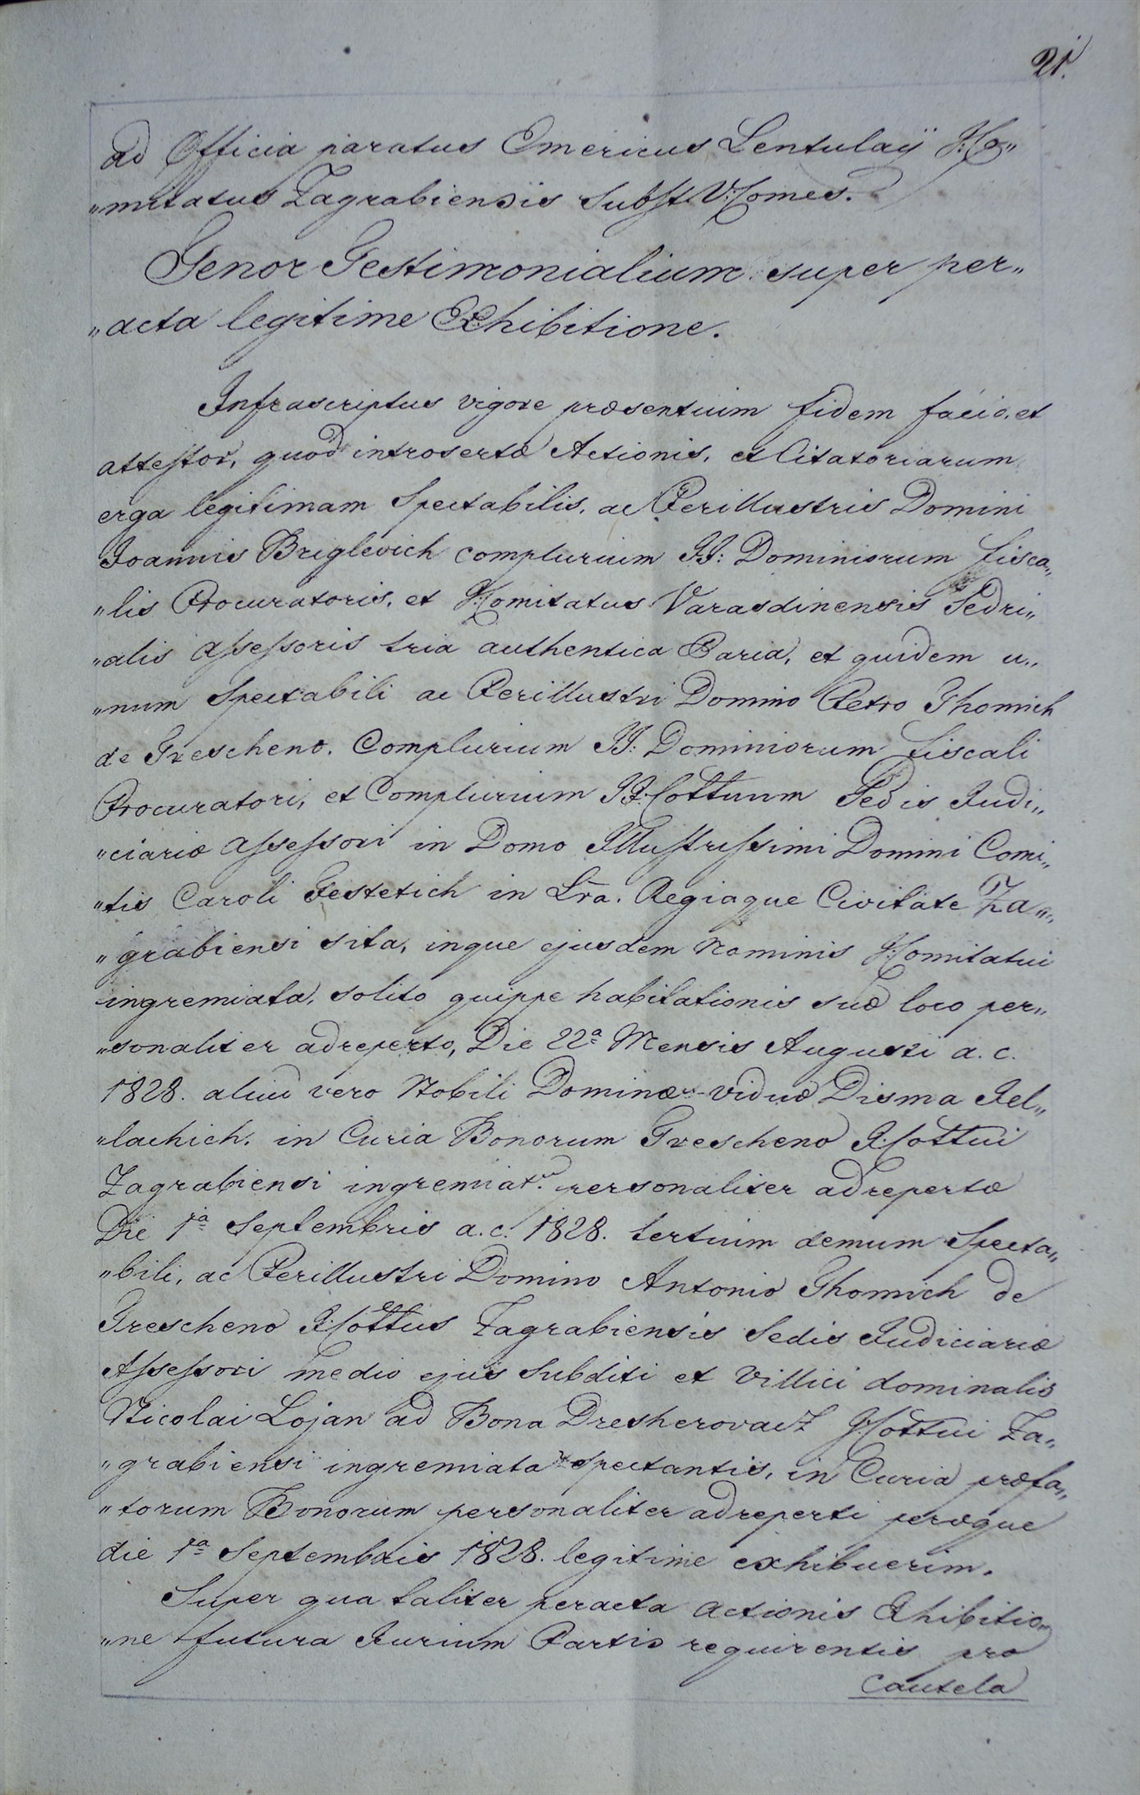 21.
ad Officia paratus Emericus Lentulaÿ I: Co„
„mitatus Zagrabiensis Subst. V: Comes.
Tenor Testimonialium super per„
„acta legitime Exhibitione.
Infrascriptus vigore præsentium fidem facio, et
attestor, quod introsertæ Actionis, et Citatoriarum
erga legitimam Spectabilis, ac Perillustris Domini
Joannis Briglevich complurium II: Dominiorum fisca„
„lis Procuratoris, et I: Comitatus Varasdinensis Sedri„
„alis Assessoris tria authentica Paria, et quidem u„
„num Spectabili ac Perillustri Domino Petro Thomich
de Grescheno. Complurium II: Dominiorum fiscali
Procuratori, et Complurium II: Cottuum Sedis Judi„
„ciariæ Assessori in Domo Illustrissimi Domini Comi„
„tis Caroli Festetich in Lra. Regiaque Civitate Za„
„grabiensi sita, inque ejusdem Nominis I: Comitatui
ingremiata, solito quippe habitationis suæ loco per„
„sonaliter adreperto, Die 22ª Mensis Augusti a. c.
1828. aliud vero Nobili Dominæ viduæ Disma Jel„
„lachich, in Curia Bonorum Grescheno I: Cottui
Zagrabiensi ingremiat. personaliter adrepertæ
Die 1ª Septembris a. c. 1828. tertium demum Specta„
„bili, ac Perillustri Domino Antonio Thomich de
Grescheno I: Cottus Zagrabiensis Sedis Judiciariæ
Assessori medio ejus Subditi et Villici dominalis
Nicolai Lojan ad Bona Dresherovacz I: Cottui Za„
„grabiensi ingremiata spectantis, in Curia præfa„
„torum Bonorum personaliter adreperti peræque
die 1ª Septembris 1828. legitime exhibuerim.
Super qua taliter peracta Actionis Exhibitio„
„ne futura Jurium Partis requirentis pro
Cautela